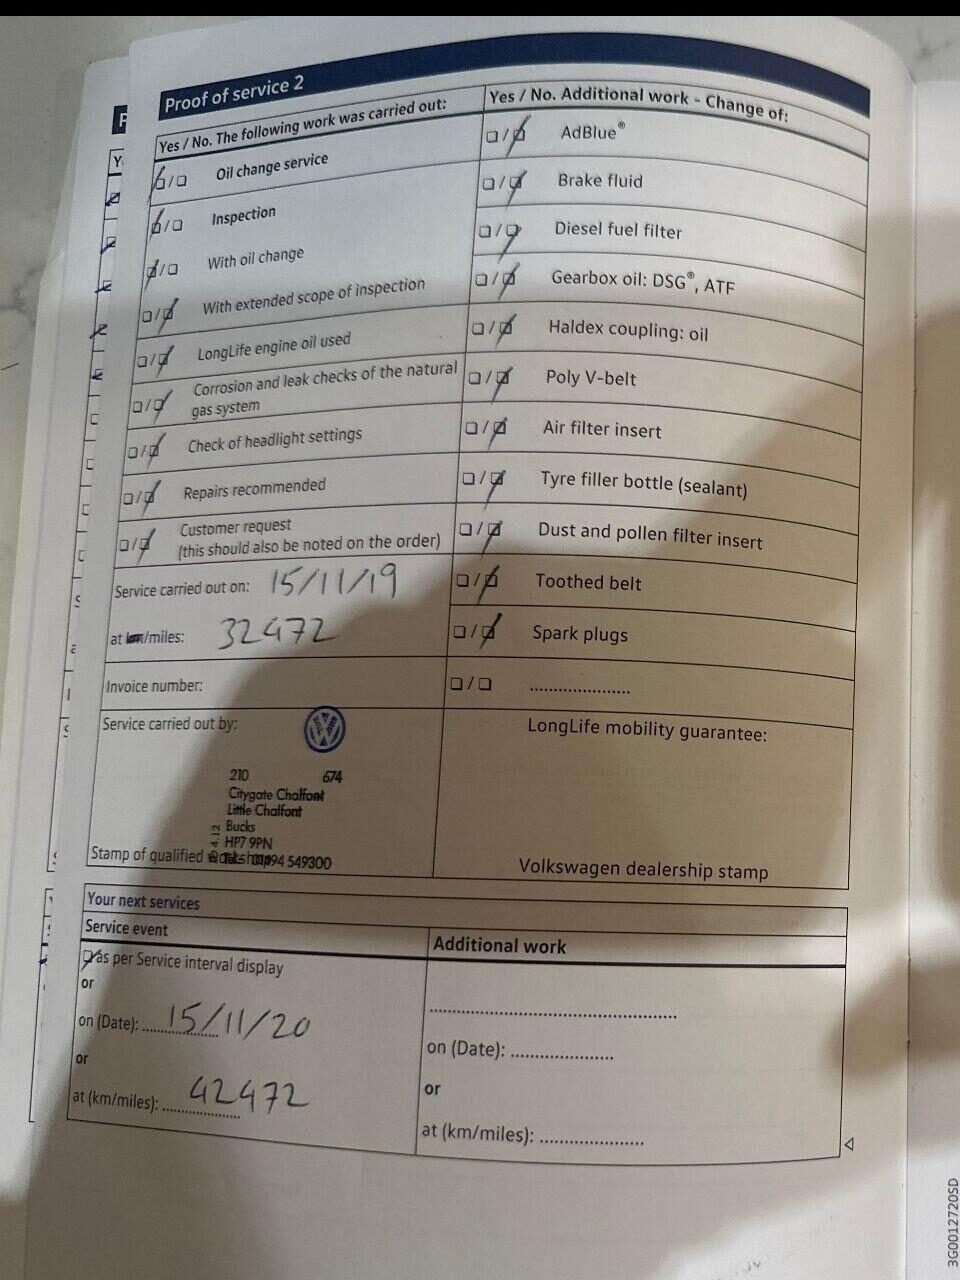 Proof of service 2
Yes / No. The following work was carried out:
Oil change service
Inspection
With oil change
With extended scope of inspection
LongLife engine oil used
Corrosion and leak checks of the natural
gas system
Check of headlight settings
Repairs recommended
Customer request
(this should also be noted on the order)
Service carried out on: 15/11/19
at km/miles: 32472
Invoice number:
Service carried out by:
210 674
Citygate Chalfont
Little Chalfont
Bucks
HP7 9PN
01494 549300
Stamp of qualified workshop
Yes / No. Additional work - Change of:
AdBlue®
Brake fluid
Diesel fuel filter
Gearbox oil: DSG®, ATF
Haldex coupling: oil
Poly V-belt
Air filter insert
Tyre filler bottle (sealant)
Dust and pollen filter insert
Toothed belt
Spark plugs
.....................
LongLife mobility guarantee:
Volkswagen dealership stamp
Your next services
Service event
as per Service interval display
or
on (Date): 15/11/20
or
at (km/miles): 42472
Additional work
on (Date): .....................
or
at (km/miles): .....................
3G0012720SD